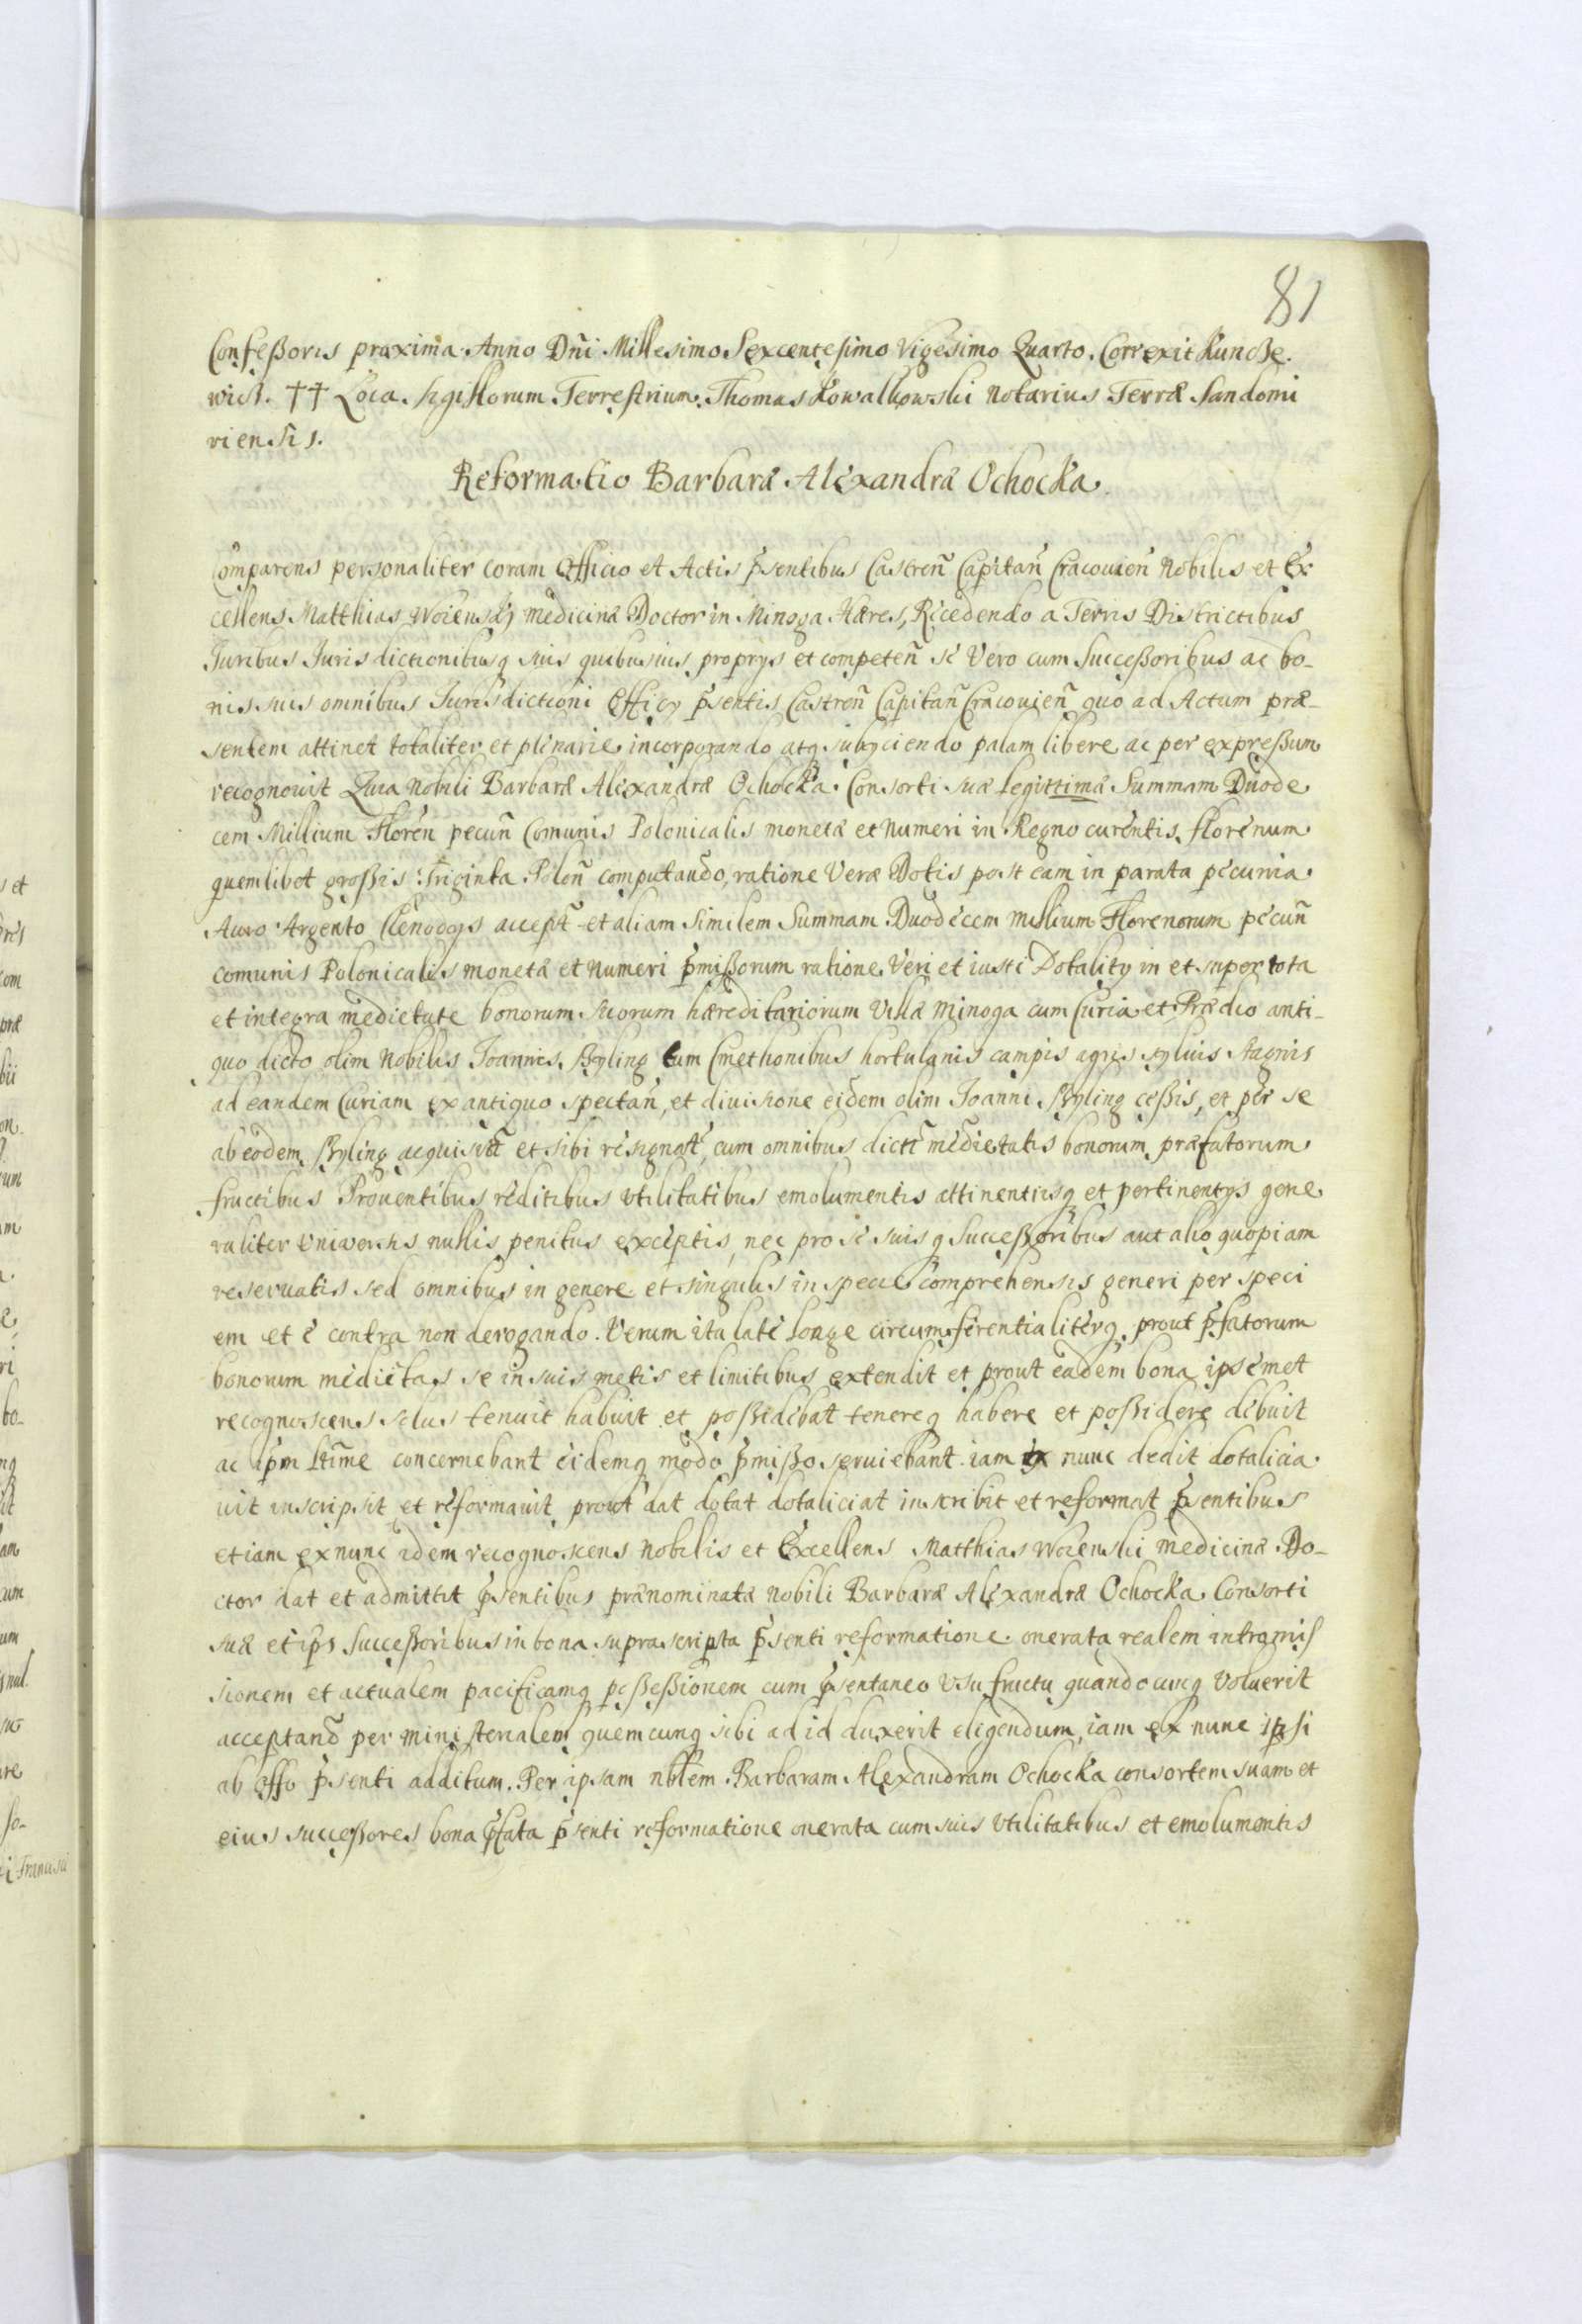 81
Confeßoris proxima. Anno Dñi Millesimo Sexcentesimo Vigesimo Quarto. Correxit Kuncze.
wicz. †† Loca Sigillorum Terrestrium. Thomas Kowalkowski Notarius Terræ Sandomi
riensis.
Reformatio Barbaræ Alexandræ Ochocka.
Comparens personaliter coram Officio et Actis p̃sentibus Castreñ Capitañ Cracouieñ Nobilis et Ex
cellens Matthias Woienskj medicinæ Doctor in Minoga Hæres, Recedendo a Terris Districtibus
Juribus Jurisdictionibusq suis quibusuis proprys et competeñ se Vero cum Succeßoribus ac bo-
nis suis omnibus Jurisdictioni Officy p̃sentis Castreñ Capitañ Cracouieñ quo ad Actum præ-
sentem attinet totaliter et plenarie incorporando atq subyciendo palam libere ac per expreßum
recognouit Quia Nobili Barbaræ Alexandræ Ochocka Consorti suæ legittimæ Summam Duode
cem Millium Floreñ pecuñ Comunis Polonicalis monetæ et Numeri in Regno curentis, florenum
quemlibet großis Triginta Poloñ computando, ratione Veræ Dotis post eam in parata pecunia
Auro Argento Clenodys accept̃ et aliam similem Summam Duodecem millium Florenorum pecuñ
comunis Polonicalis monetæ et Numeri p̃mißorum ratione Veri et iusti Dotality in et super tota
et integra medietate bonorum suorum hæreditariorum Villæ Minoga cum Curia et Prædio anti-
quo dicto olim Nobilis Joannis Ryling cum Cmethonibus hortulanis campis agris syluis stagnis
ad eandem Curiam ex antiquo spectañ, et diuisione eidem olim Joanni Ryling ceßis, et per se
ab eodem Ryling acquisit̃ et sibi resignat̃, cum omnibus dict̃ medietatis bonorum præfatorum
fructibus Prouentibus reditibus vtilitatibus emolumentis attinentiisq et pertinentys gene
raliter Vniuersis nullis penitus exceptis, nec pro se suisq Succeßoribus aut alio quopiam
reseruatis sed omnibus in genere et singulis in specie comprehensis generi per speci
em et e contra non derogando. Verum ita late longe circumferentialiterq. prout p̃fatorum
bonorum medietas se in suis metis et limitibus extendit et prout eadem bona ipsemet
recognoscens solus tenuit habuit et poßidebat tenereq habere et poßidere debuit
ac ip̃m ltĩme concernebant eidemq modo p̃mißo seruiebant iam ex nunc dedit dotalicia
uit inscripsit et reformauit prout dat dotat dotaliciat inscribit et reformat p̃sentibus
etiam ex nunc idem recognoscens Nobilis et Excellens Matthias Woienski medicinæ Do-
ctor dat et admittit p̃sentibus prænominatæ Nobili Barbaræ Alexandræ Ochocka Consorti
suæ et ip̃s Succeßoribus in bona suprascripta p̃senti reformatione onerata realem intromis
sionem et actualem pacificamq poßeßionem cum p̃sentaneo Vsufructu quandocunq Voluerit
acceptand̃ per ministerialem quemcunq sibi ad id duxerit eligendum, iam ex nunc ipsi
ab offo p̃senti additum. Per ipsam nb̃lem Barbaram Alexandram Ochocka consortem suam et
eius succeßores bona p̃fata p̃senti reformatione onerata cum suis vtilitatibus et emolumentis